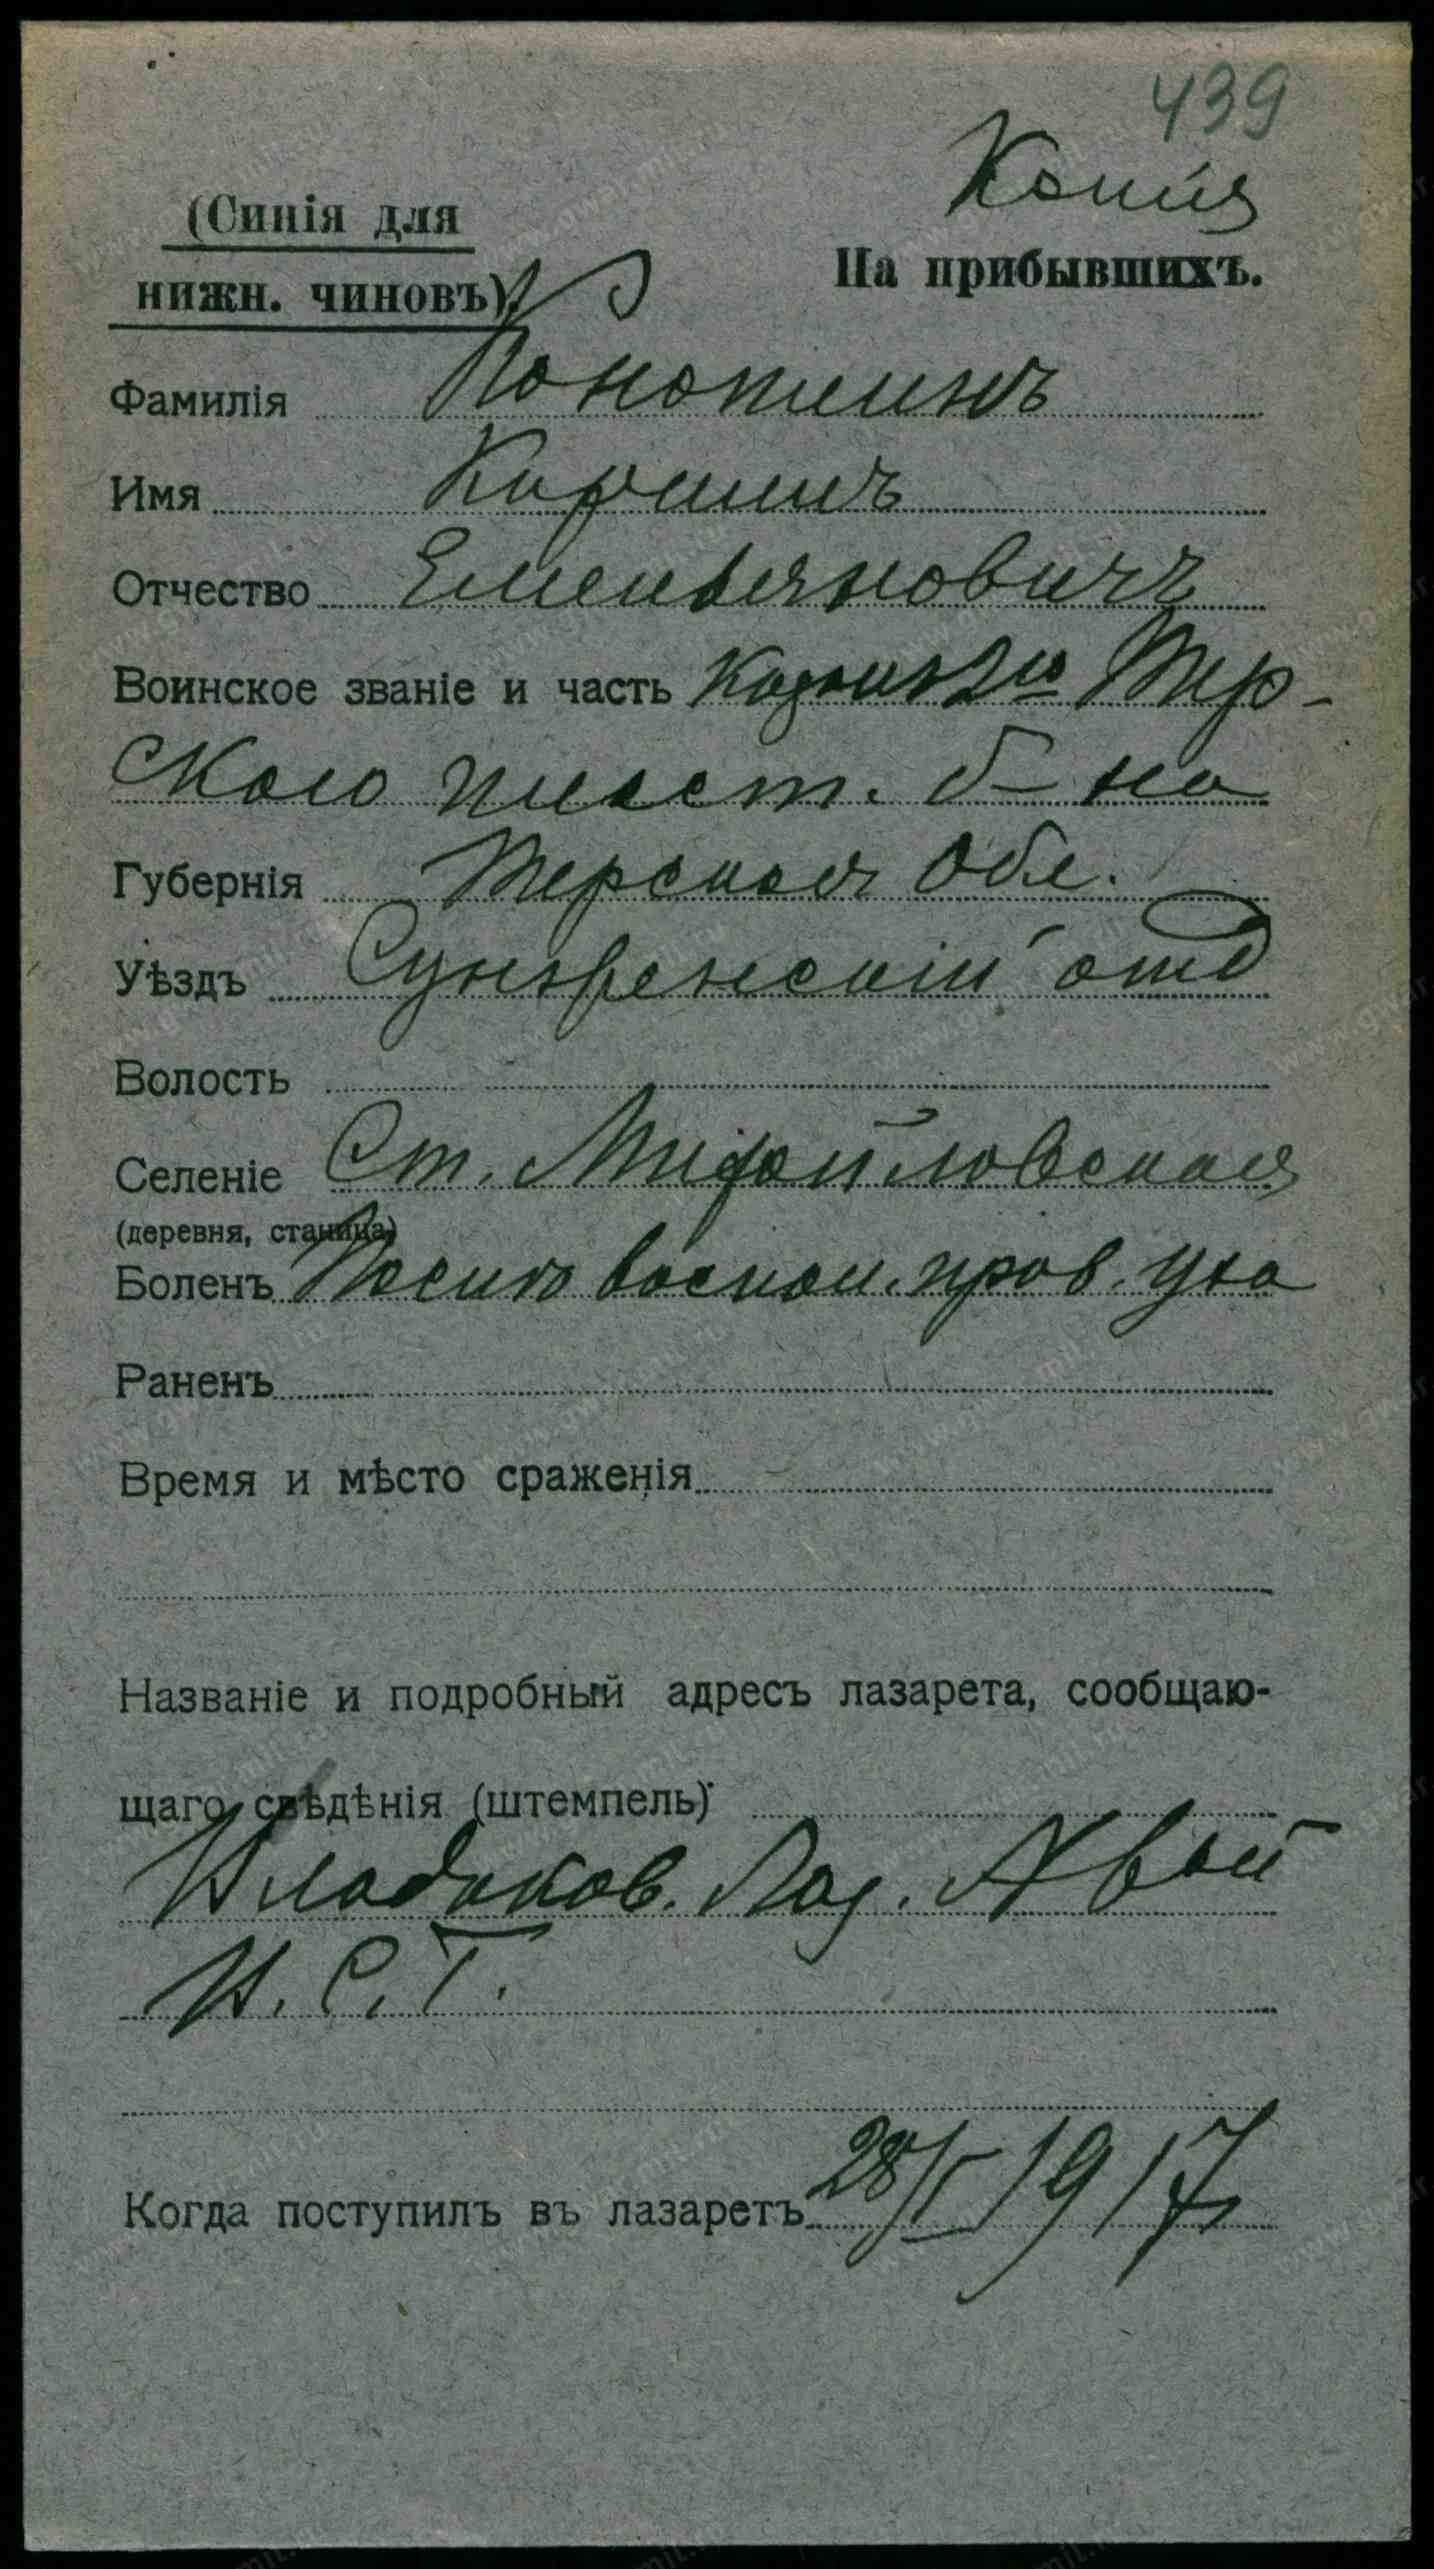 439
Копія
(Синія для
На прибывшихъ.
нижн. чиновъ)
Фамилія Кононихинъ
Имя Кирилъ
Отчество Емельяновичъ
Воинское званіе и часть Казакъ 2го Тер-
скаго пласт. б-на
Губернія Терская Обл.
Уѣздъ Сунженскій отд
Волость
Селеніе Ст. Михайловская
(деревня, станица)
Боленъ воспал. прав. уха
Раненъ
Время и мѣсто сраженія
Названіе и подробный адресъ лазарета, сообщаю-
щаго свѣдѣнія (штемпель)
Владиков. Лаз. №
В. С. Г.
Когда поступилъ въ лазаретъ 28/I 1917